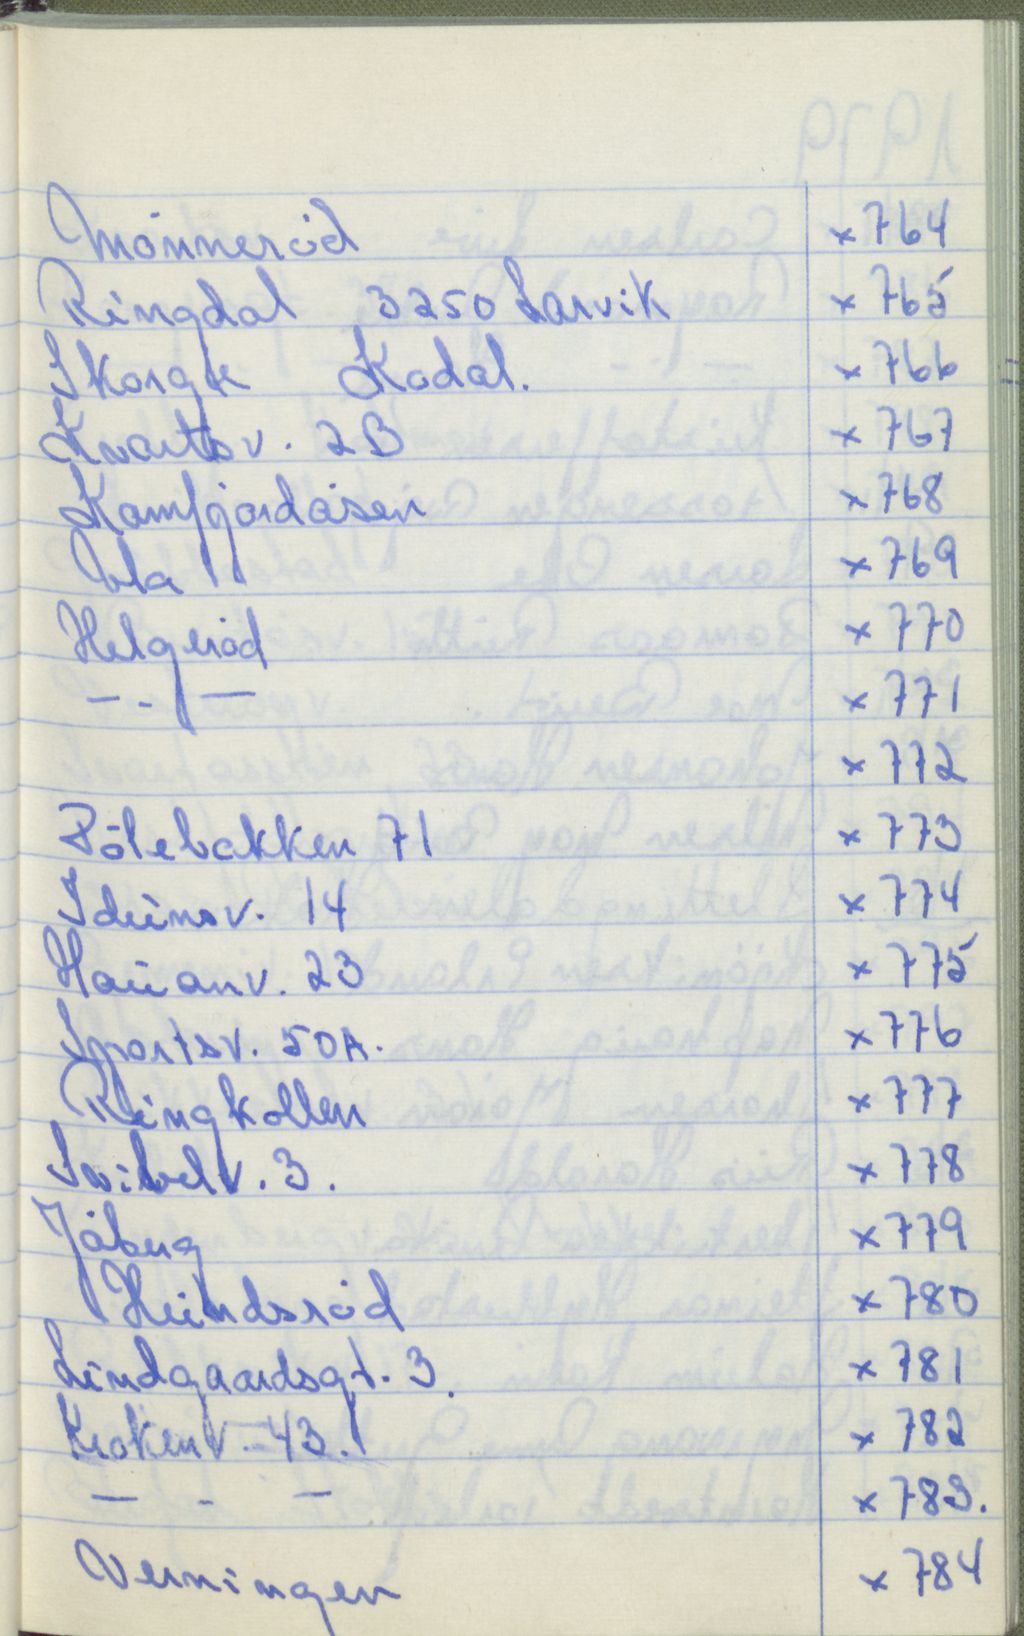 Mønnerød x 764
Ringdal 3250 Larvik x 765
Skorge Kodal. x 766
Kvartsv. 2B x 767
Kamfjordåsen x 768
Ula x 769
Helgerød x 770
— - — x 771
x 772
Pølebakken 71 x 773
Idunsv. 14 x 774
Hauanv. 23 x 775
Sportsv. 50A. x 776
Ringkollen x 777
Svibelv. 3. x 778
Jåberg x 779
Heindsrød x 780
Lindgaardsgt. 3. x 781
Krokenv. 43. x 782
— - — x 783.
Verningen x 784